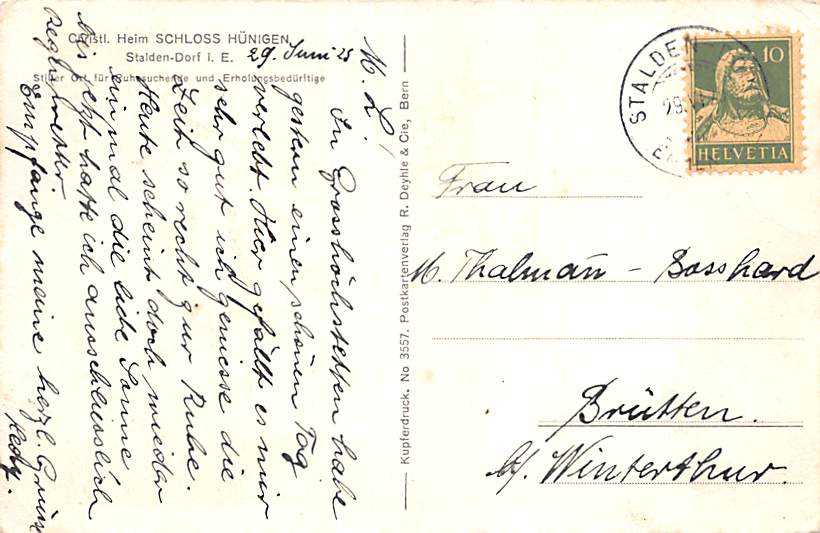 Christl. Heim SCHLOSS HÜNIGEN
Stalden-Dorf i. E.
Stiller Ort für Ruhesuchende und Erholungsbedürftige
29. Juni 25
M. L.!
In Grosshöchstetten habe
gestern einen schönen Tag
verlebt. Hier gefällt es mir
sehr gut ich geniesse die
Zeit so recht zur Ruhe.
Heute scheint doch wieder
einmal die liebe Sonne
bis jetzt hatte ich ausschliesslich
Regenwetter.
Empfange meine herzl. Grüsse
Kupferdruck. No 3557. Postkartenverlag R. Deyhle & Cie, Bern
STALDEN
29.
10
HELVETIA
Frau
M. Thalmann - Bosshard
Brütten.
b/ Winterthur.